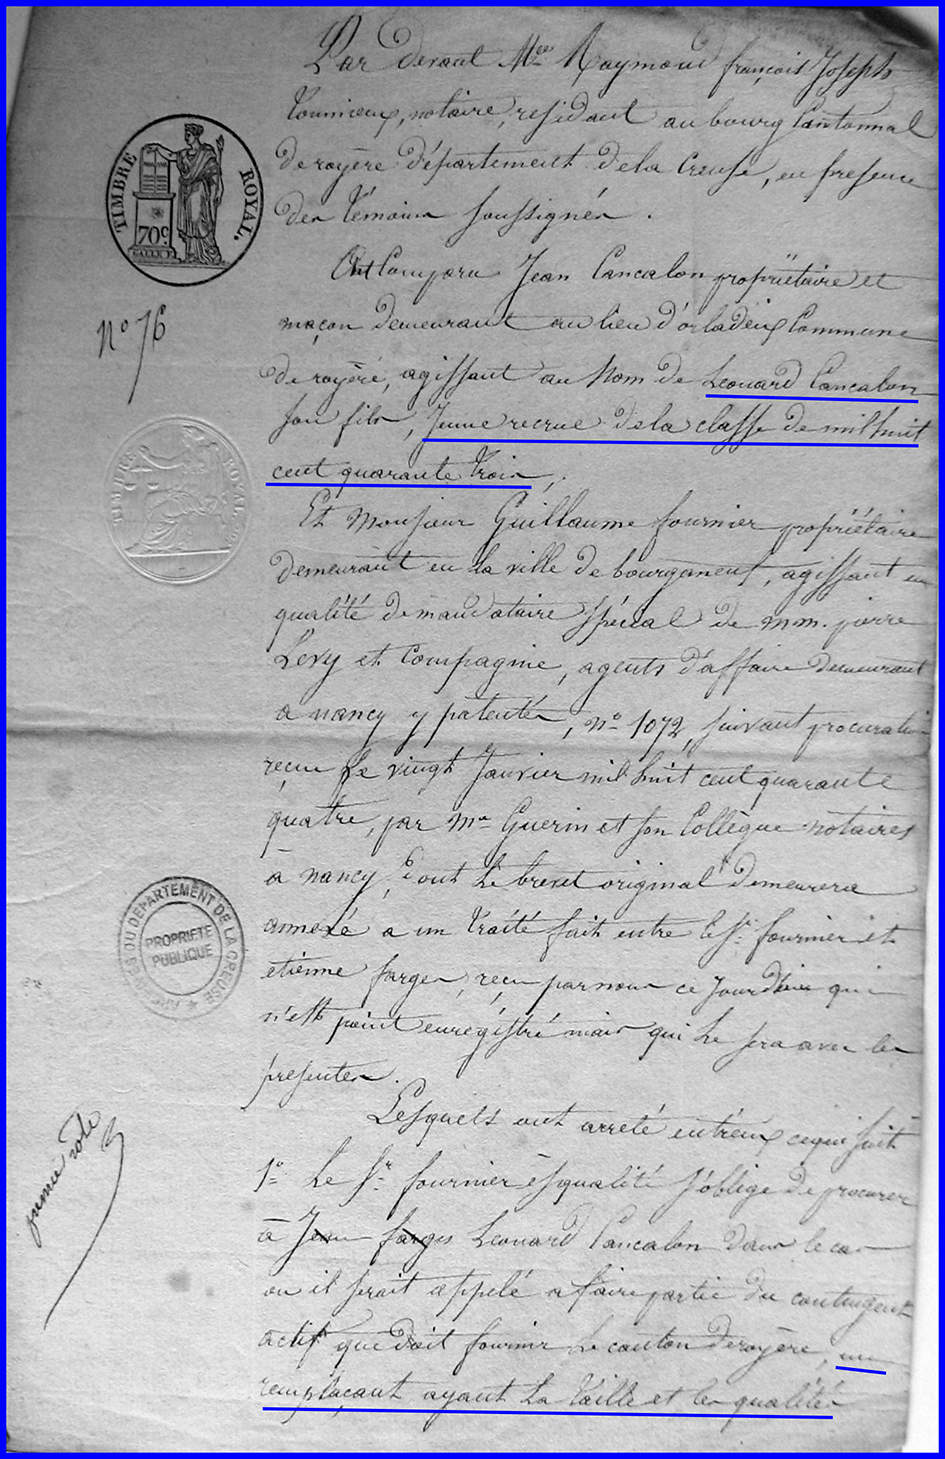 Par devant Me Raymond françois Joseph
notaire, résidant au bourg Cantonnal
de royère département de la Creuse, en presence
des témoins soussignés.
TIMBRE ROYAL.
70c
Ont Comparu Jean Cancalon propriétaire et
maçon demeurant au lieu d'orladeix Commune
No 76
de royère, agissant au Nom de Leonard Cancalon
son fils, Jeune recrue de la classe de mil huit
cent quarante trois,
TIMBRE ROYAL
Et Monsieur Guillaume fournier propriétaire
demeurant en la ville de bourganeuf, agissant en
qualité de mandataire spécial de mm. pierre
Levy et Compagnie, agents d'affaire demeurant
a nancy y patentés, No 1072, suivant procuration
reçue le vingt Janvier mil huit cent quarante
quatre, par Me Guerin et son Collègue notaires
a nancy, dont le brevet original demeurera
annexé a un traité fait entre le Sr. fournier et
etienne farges, reçu par nous ce jourdhui qui
n'est point enregistré mais qui le sera avec les
presentes.
ARCHIVES DU DEPARTEMENT DE LA CREUSE
PROPRIETE
PUBLIQUE
Lesquels ont arreté entr'eux ce qui suit
1o Le Sr. fournier èsqualité s'oblige de procurer
à Jean farges Leonard Cancalon dans le cas
ou il serait appelé a faire partie du contingent
actif que doit fournir le canton de royère, un
remplaçant ayant la taille et les qualités
premier rôle